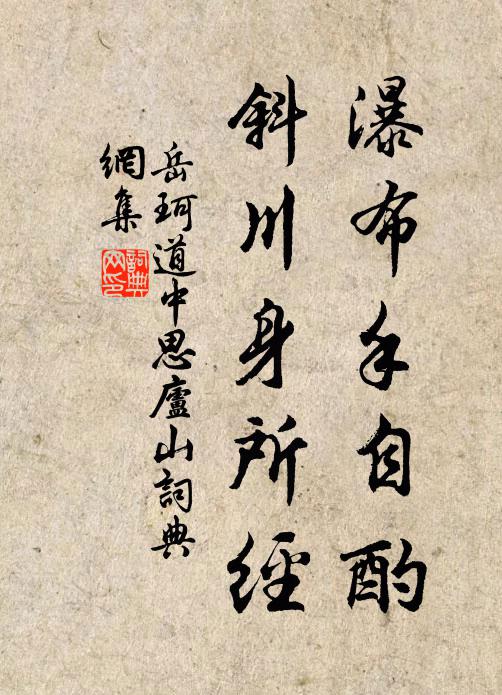 瀑布手自酌
斜川身所經
岳珂道中思廬山詞典
網集
詞典
网印